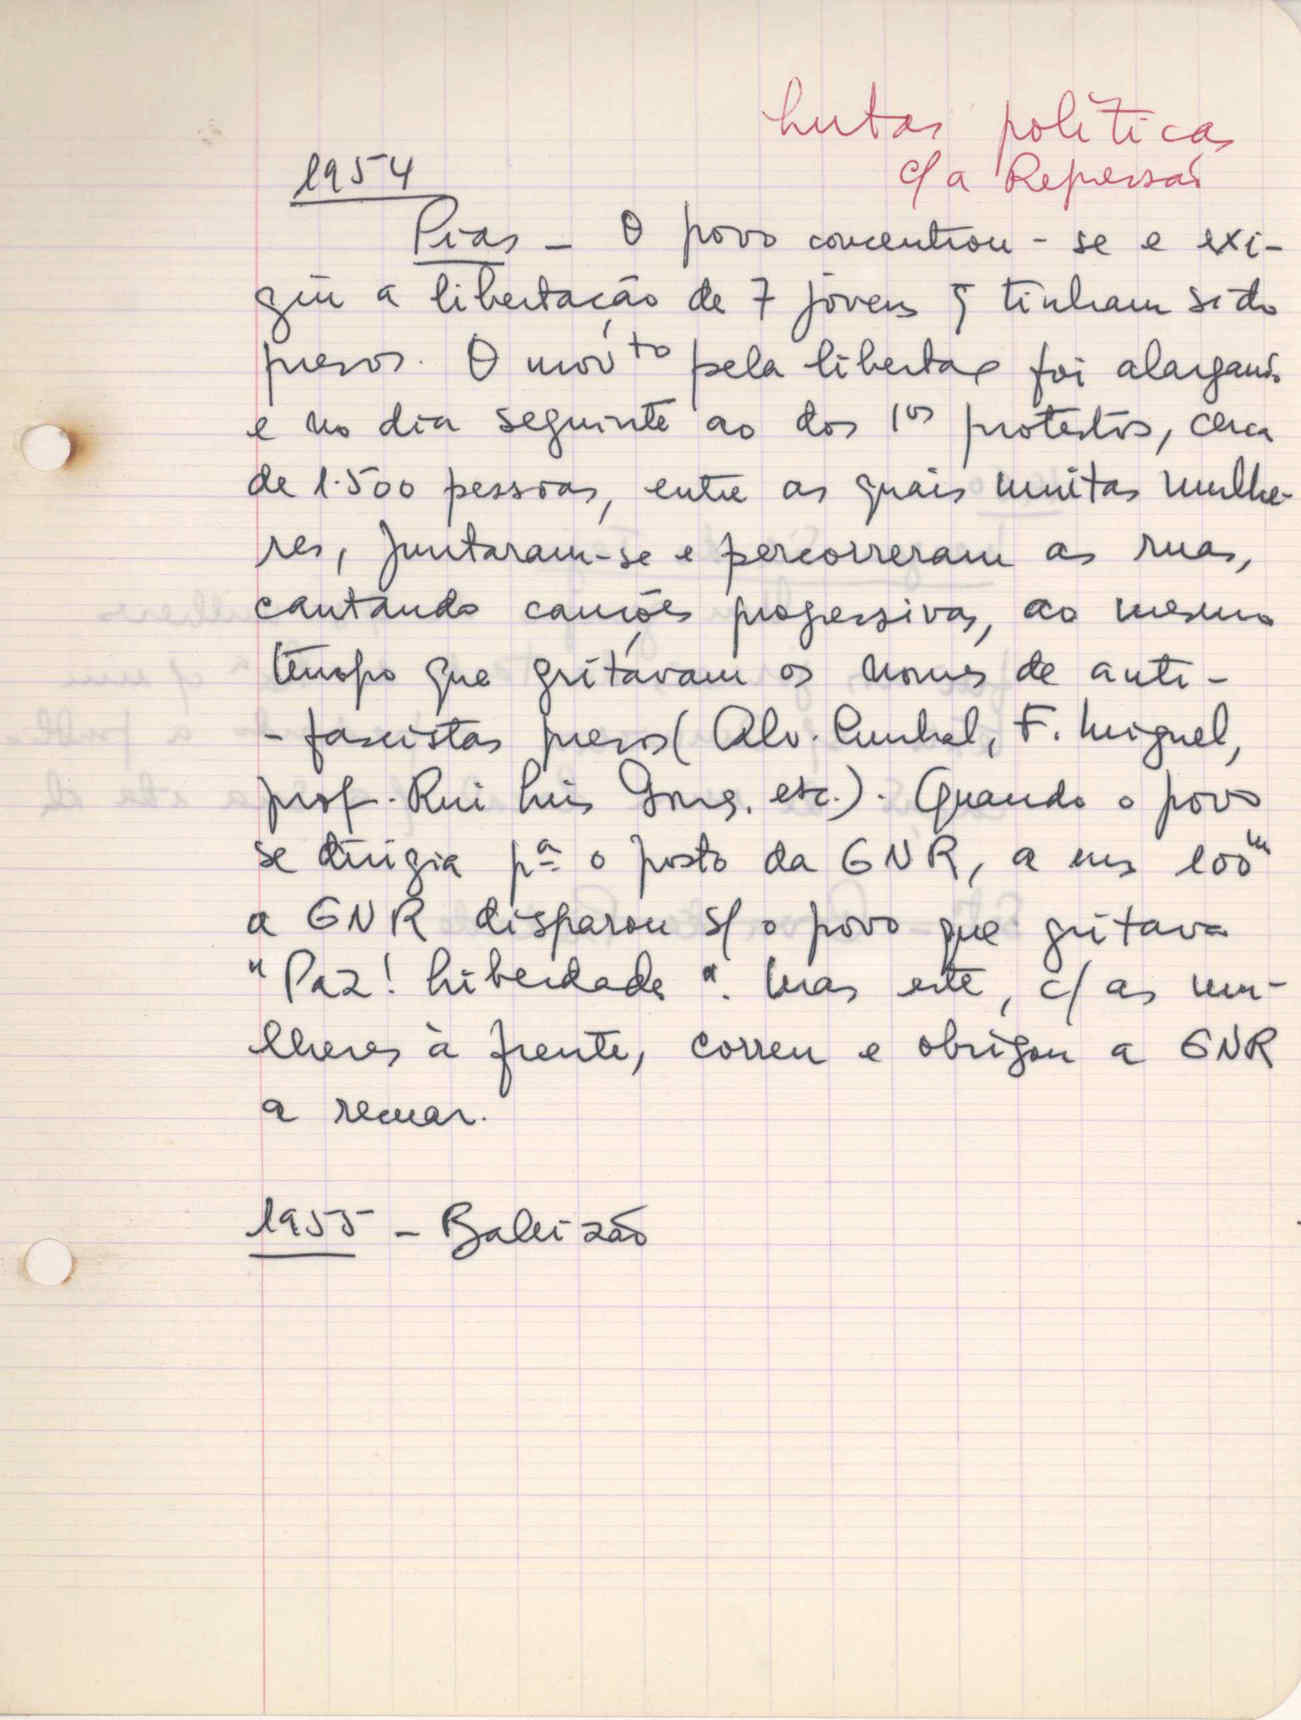 Lutas políticas
c/a Repressão
1954
Pias - O povo concentrou-se e exi-
giu a libertação de 7 jóvens q tinham sido
presos. O movto pela libertaç foi alargando
e no dia seguinte ao dos 1os protestos, cerca
de 1.500 pessoas, entre as quais muitas mulhe-
res, juntaram-se e percorreram as ruas,
cantando canções progessivas, ao mesmo
tempo que gritavam os nomes de anti-
-fascistas presos (Alv. Cunhal, F. Miguel,
prof. Rui Luis Gomes, etc.). Quando o povo
se dirigia pª o posto da GNR, a uns 100m
a GNR disparou s/ o povo que gritava
"Paz! Liberdade". Mas este, c/ as mu-
lheres à frente, correu e obrigou a GNR
a recuar.
1955 - Baleizão